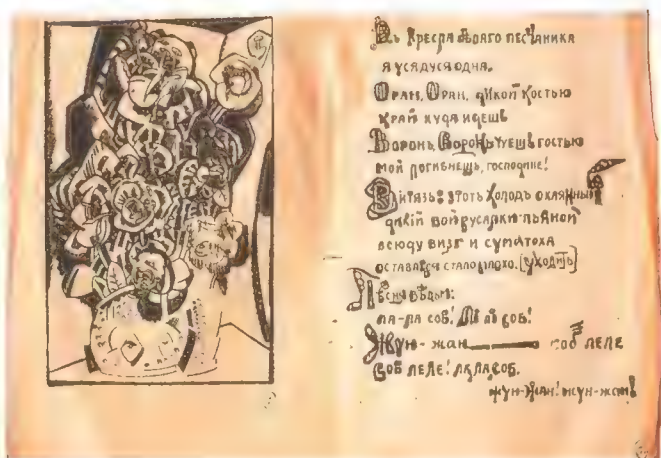 Въ кресла бѣлаго песчаника
я усядуся одна.
Оран, Оран, дикой костью
край куда идешь
Воронъ, Воронъ, чуешь гостью
мой погибнешь, господине!
Витязь: этотъ холодъ окаянный
дикій вой русалки пьяной
всюду визг и суматоха
оставаться стало плохо. (уходитъ)
Пѣсня вѣдьм:
ла-ла соб! ли соб!
Жун-жан соб леле
соб леле! ла ла соб.
жун-жан! жун-жан!